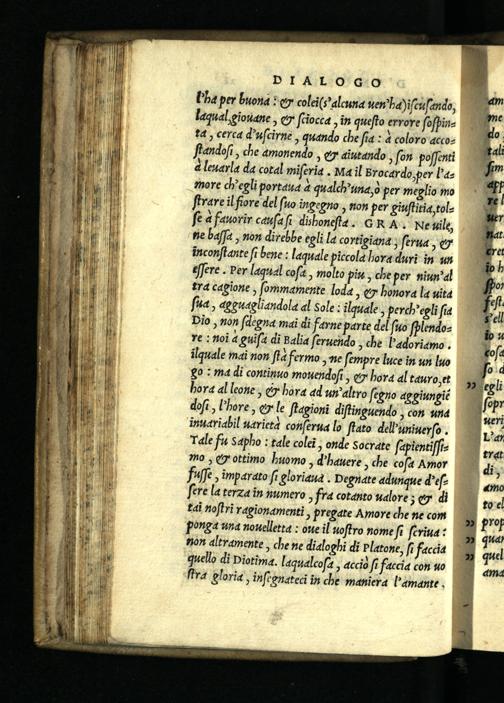 DIALOGO
l'ha per buona: & colei (s'alcuna uen'ha) iscusando,
laqual, giouane, & sciocca, in questo errore sospin=
ta, cerca d'uscirne, quando che sia: à coloro acco=
standosi, che amonendo, & aiutando, son possenti
à leuarla da cotal miseria. Ma il Brocardo, per l'a=
more ch'egli portaua à qualch'una, ò per meglio mo
strare il fiore del suo ingegno, non per giustitia, tol=
se à fauorir causa si dishonesta. GRA. Ne uile,
ne bassa, non direbbe egli la cortigiana, serua, &
inconstante si bene: laquale piccola hora duri in un
essere. Per laqual cosa, molto piu, che per niun'al
tra cagione, sommamente loda, & honora la uita
sua, agguagliandola al Sole: ilquale, perch'egli sia
Dio, non sdegna mai di farne parte del suo splendo=
re: noi à guisa di Balia seruendo, che l'adoriamo.
ilquale mai non stà fermo, ne sempre luce in un luo
go: ma di continuo mouendosi, & hora al tauro, et
hora al leone, & hora ad un'altro segno aggiungiē
dosi, l'hore, & le stagioni distinguendo, con una
inuariabil uarietà conserua lo stato dell'uniuerso.
Tale fu Sapho: tale colei, onde Socrate sapientissi=
mo, & ottimo huomo, d'hauere, che cosa Amor
fusse, imparato si gloriaua. Degnate adunque d'es=
sere la terza in numero, fra cotanto ualore; & di
tai nostri ragionamenti, pregate Amore che ne com
ponga una nouelletta: oue il uostro nome si scriua:
non altramente, che ne dialoghi di Platone, si faccia
quello di Diotima. laqualcosa, acciò si faccia con uo
stra gloria, insegnateci in che maniera l'amante,